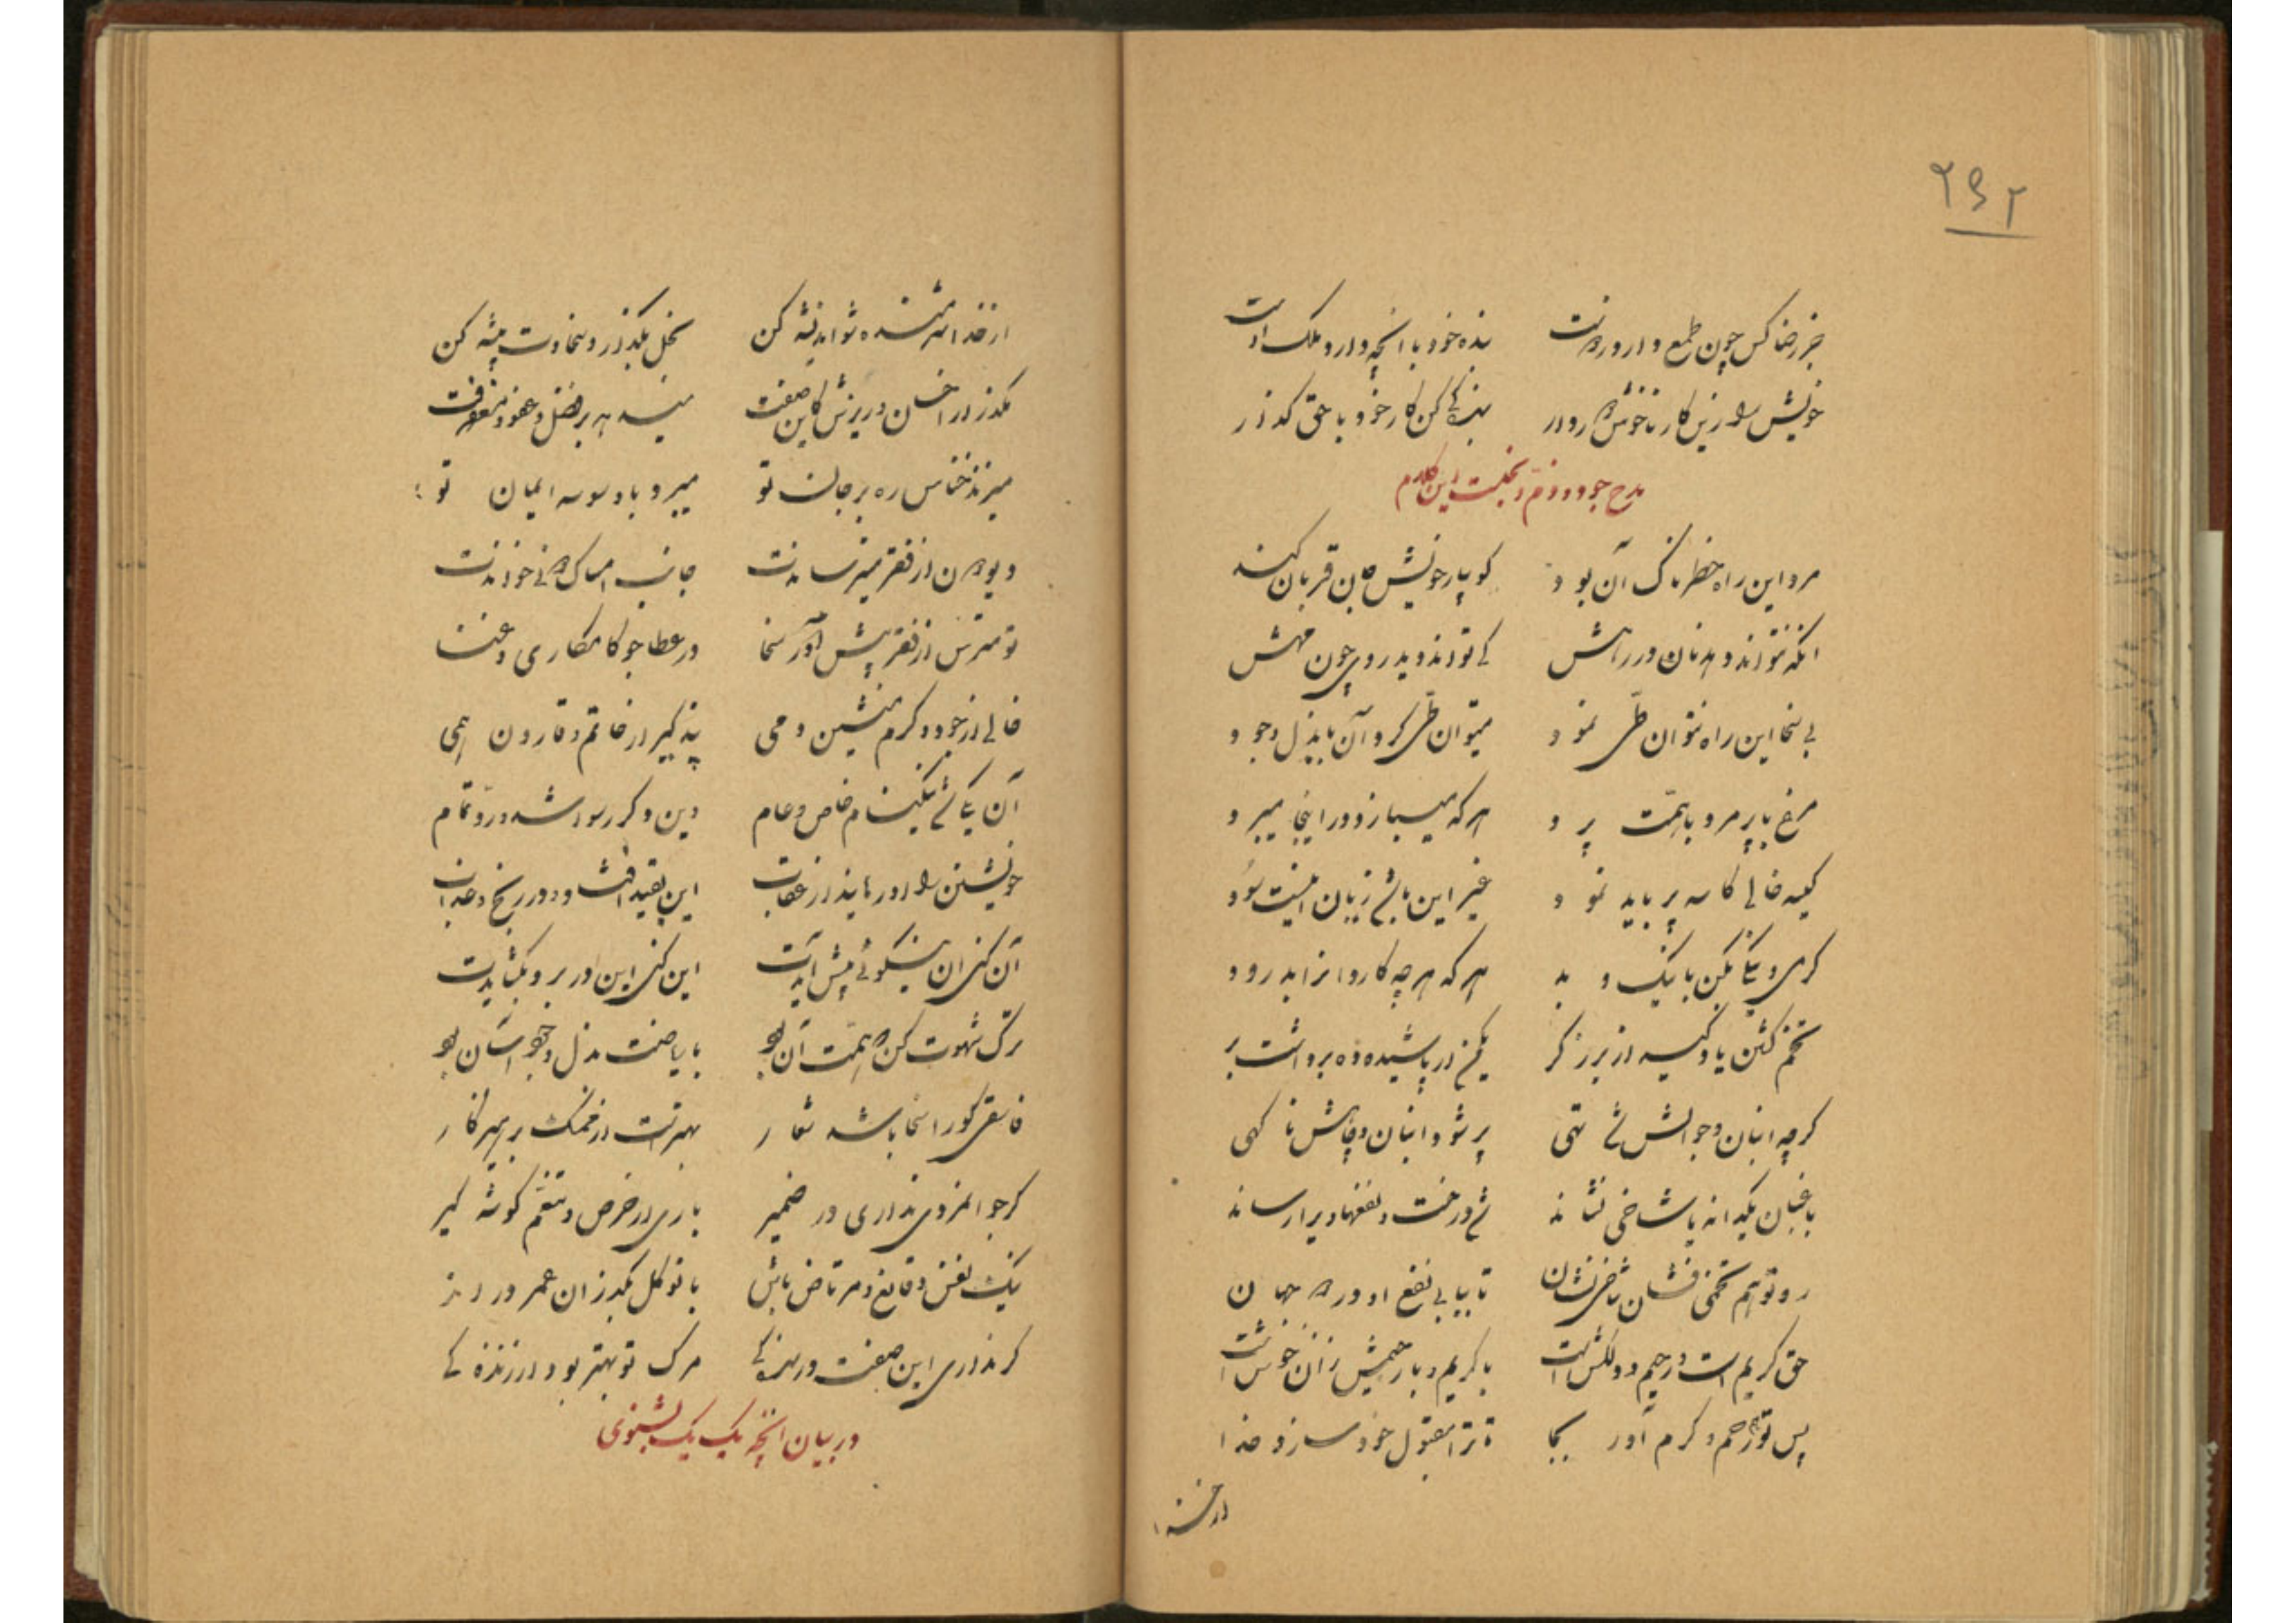 ۲۶۲
جز رضا کس چون طمع دارد درست بنده خود با آنچه دارد ملک اوست
خویش را زین کار ناخوش دار دور بندگی کن کار خود با حق گذار
مدح جود و ذم بخلست این کلام
مرد این راه خطرناک آن بود کو بپار خویش جان قربان کند
آنکه نتواند دهد نان در رهش کی تواند دید روی چون مهش
بی سخا این راه نتوان طی نمود میتوان طی کرد آن با بذل وجود
مرغ با پر مرد با همت پرد هر که میبازد در اینجا میبرد
کیسه خالی کاسه پر باید نمود غیر این باشد زیان اینست سود
گرمی و نیکی بکن با نیک و بد هر که هر چه کارد آنرا بدرود
تخم کشتن یاد گیر از برزگر یکمن ار پاشیده ده برداشت بر
گرچه انبان و جوالش شد تهی پر شود انبان و جایش ناگهی
باغبان یکدانه یا شاخی نشاند شد درخت و نفعها ویرا رساند
رو تو هم تخمی فشان شاخی نشان تا بیابی نفع او در دو جهان
حق کریم است و رحیم و دلکش است با کریم و با رحیمش زان خوش است
پس تو رحم و کرم آور بجا تا ترا مقبول خود سازد خدا
از خدا
از خدا شرمنده شو اندیشه کن بخل بگذار و سخاوت پیشه کن
مگذر از احسان و ریزش کاین صفت میدهد بر فضل و عفو و مغفرت
میزند خناس ره بر جان تو میبرد با وسوسه ایمان تو
دیو چون از فقر میترساندت جانب امساک میخواندت
تو مترس از فقر پیش آور سخا در عطا جو کامکاری و غنا
خالی از جود و کرم منشین دمی پند گیر از حاتم و قارون همی
آن یکی شد نیکنام خاص و عام وین دگر رسوا شد و رد تمام
خویشتن را او رهانید از عقاب این بقید افتاد و در رنج و عذاب
آن کنی آن نیکوئی پیش آیدت این کنی این در برو بگشایدت
ترک شهوت کن که همت آن بود با ریاضت بذل وجود آسان بود
فاسقی کو را سخا باشد شعار بهتر است از ممسک پرهیزگار
گر جوانمردی نداری در ضمیر باری از حرص و تنعم گوشه گیر
نیک نفس و قانع و مرتاض باش با توکل بگذران عمر دراز
گر نداری این صفت در بندگی مرگ تو بهتر بود از زندگی
در بیان آنچه یک یک بشنوی